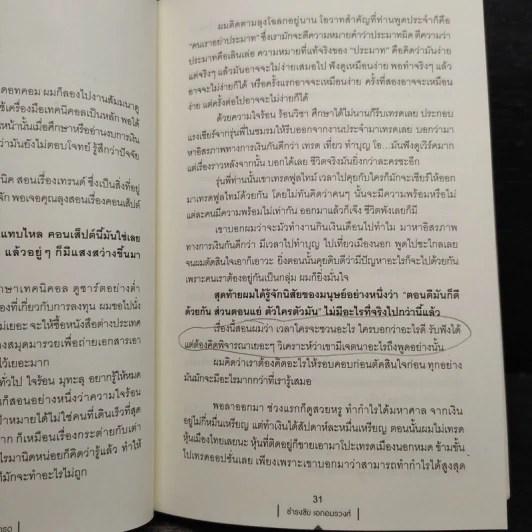 ดอทคอม ผมก็ลองไปงานสัมมนาดู
ช้เครื่องมือเทคนิคอลเป็นหลัก พอได้
หน้านั้นเมื่อศึกษาหรืออ่านงบการเงิน
ว่ามันยังไม่ตอบโจทย์ รู้สึกว่าปัจจัย
นิค สอนเรื่องเทรนด์ ซึ่งเป็นสิ่งที่อยู่
จัก พอเจอคุณลุงสอนเรื่องคอนเส็ปต์
แทบไหล คอนเส็ปต์นี้มันใช่เลย
แล้วอยู่ๆ ก็มีแสงสว่างขึ้นมา
ษาเทคนิคอล ดูชาร์ตอย่างต่ำ
งที่เกี่ยวกับการลงทุน ผมขอไปนั่ง
ไม่เยอะ จะให้ซื้อหนังสือต่างประเทศ
งสมุดมารวยเพื่อถ่ายเอกสารและ
เยอะมาก
ทั่วไป ใจร้อน มุทะลุ อยากรู้ให้หมด
ก็สอนอย่างหนึ่งว่าความใจร้อน
ป้าหมายได้ไม่ใช่คนที่เดินเร็วที่สุด
ก็เหมือนเรื่องกระต่ายกับเต่า
รมานิดหน่อยก็คิดว่ารู้แล้ว ทำให้
ก็มักจะทำอะไรไม่ถูก
ผมติดตามลุงโฉลกอยู่นาน โอวาทสำคัญที่ท่านพูดประจำก็คือ
"คนเราอย่าประมาท" ซึ่งเรามักจะตีความหมายคำว่าประมาทผิด ตีความว่า
ประมาทคือเลินเล่อ ความหมายที่แท้จริงของ "ประมาท" คือคิดว่ามันง่าย
แต่จริงๆ แล้วมันอาจจะไม่ง่ายเสมอไป ฟังดูเหมือนง่าย พอทำจริงๆ แล้ว
อาจจะไม่ง่ายก็ได้ หรือครั้งแรกอาจจะเหมือนง่าย ครั้งที่สองอาจจะเหมือน
ง่าย แต่ครั้งต่อไปอาจจะไม่ง่ายก็ได้
ด้วยความใจร้อน ร้อนวิชา ศึกษาได้ไม่นานก็รีบเทรดเลย ประกอบ
แรงเชียร์จากรุ่นพี่ในชมรมให้รีบออกจากงานประจำมาเทรดเลย บอกว่ามา
หาอิสรภาพทางการเงินกันดีกว่า เทรด เที่ยว ทำบุญ โอ...มันฟังดูเวิร์คมาก
แต่เรื่องราวหลังจากนั้น บอกได้เลย ชีวิตจริงมันยิ่งกว่าละครซะอีก
รุ่นพี่ท่านนั้นเขาเทรดฟูลไทม์ เวลาไปคุยกับใครก็มักจะเชียร์ให้ออก
มาเทรดฟูลไทม์ด้วยกัน โดยไม่ทันคิดว่าคนๆ นั้นจะมีความพร้อมหรือไม่
แต่ละคนมีความพร้อมไม่เท่ากัน ออกมาแล้วก็เจ๊ง ชีวิตพังเลยก็มี
เขาบอกผมว่าจะมัวทำงานกินเงินเดือนไปทำไม มาหาอิสรภาพ
ทางการเงินกันดีกว่า มีเวลาไปทำบุญ ไปเที่ยวเมืองนอก พูดไปซะไกลเลย
จนผมตัดสินใจเอาก็เอาวะ ยิ่งตอนนั้นคุยดิบดีว่ามีปัญหาอะไรก็จะไปด้วยกัน
เพราะคนเราต้องอยู่กันเป็นกลุ่ม ผมก็ยิ่งมั่นใจ
สุดท้ายผมได้รู้จักนิสัยของมนุษย์อย่างหนึ่งว่า "ตอนดีมันก็ดี
ด้วยกัน ส่วนตอนแย่ ตัวใครตัวมัน" ไม่มีอะไรที่จริงไปกว่านี้แล้ว
เรื่องนี้สอนผมว่า เวลาใครจะชวนอะไร ใครบอกว่าอะไรดี รับฟังได้
แต่ต้องคิดพิจารณาเยอะๆ วิเคราะห์ว่าเขามีเจตนาอะไรถึงพูดอย่างนั้น
ผมคิดว่าเราต้องคิดอะไรให้รอบคอบก่อนตัดสินใจก่อน ทุกอย่าง
มันมักจะมีอะไรมากกว่าที่เรารู้เสมอ
พอลาออกมา ช่วงแรกก็ดูสวยหรู ทำกำไรได้มหาศาล จากเงิน
อยู่ไม่กี่หมื่นเหรียญ แต่ทำเงินได้สัปดาห์ละหมื่นเหรียญ ตอนนั้นผมไม่เทรด
หุ้นเมืองไทยเลยนะ หุ้นที่ติดอยู่ก็ขายเอามาโปะเทรดเมืองนอกหมด ข้ามขั้น
ไปเทรดออปชั่นเลย เพียงเพราะเขาบอกมาว่าสามารถทำกำไรได้สูงสุด
31
ธำรงชัย เอกอมรวงศ์